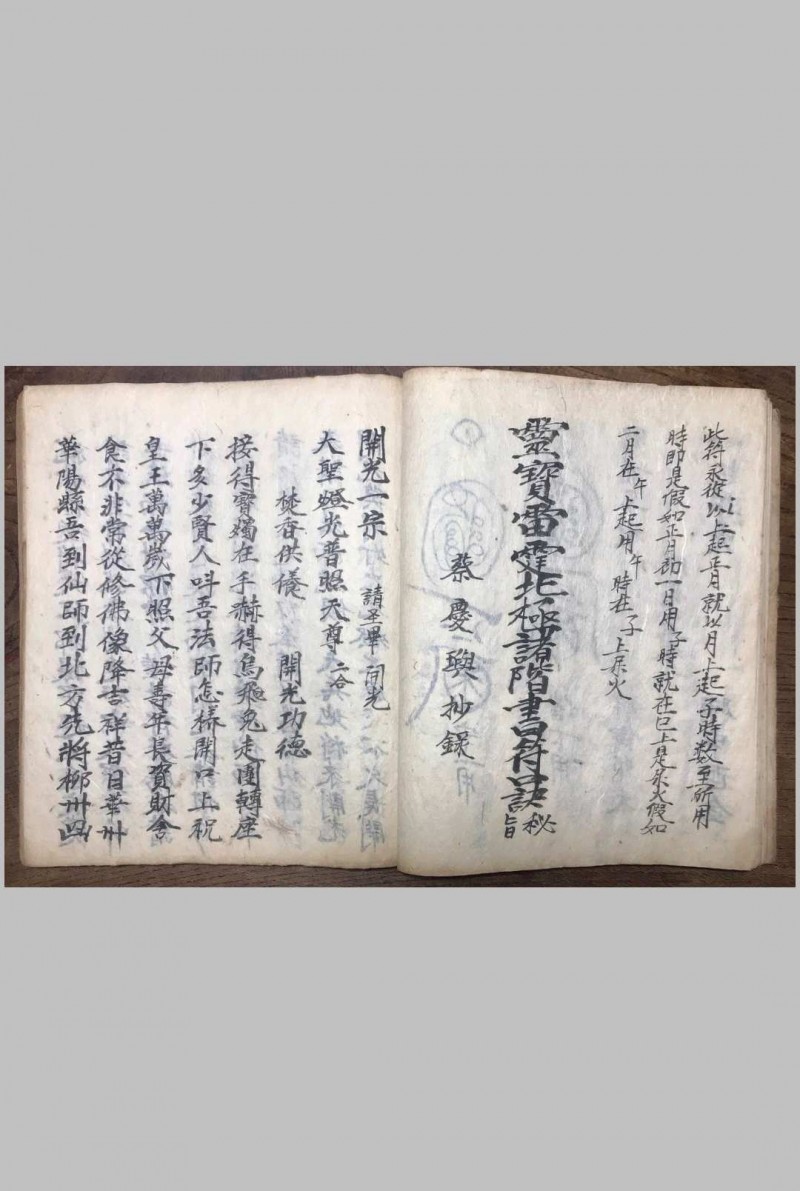 此符永從以上起正月就以月上起子時数至所用
時即是假如正月初一日用子時就在巳上是水火假如
二月在午上起用午時在子上是火
靈寶雷霆北極諸階書符口訣秘旨
蔡慶興抄録
開光一宗 請圣畢 開光
大聖燈光普照天尊 二合
焚香供儀 開光功德
接得寶燭在手赫得烏飛兔走團轉座
下多少賢人叫吾法師怎樣開口上祝
皇王萬萬歲下照父母壽年長資財含
食不非常從修佛像降吉祥昔日華州
華陽縣吾到仙師到北方先將柳州